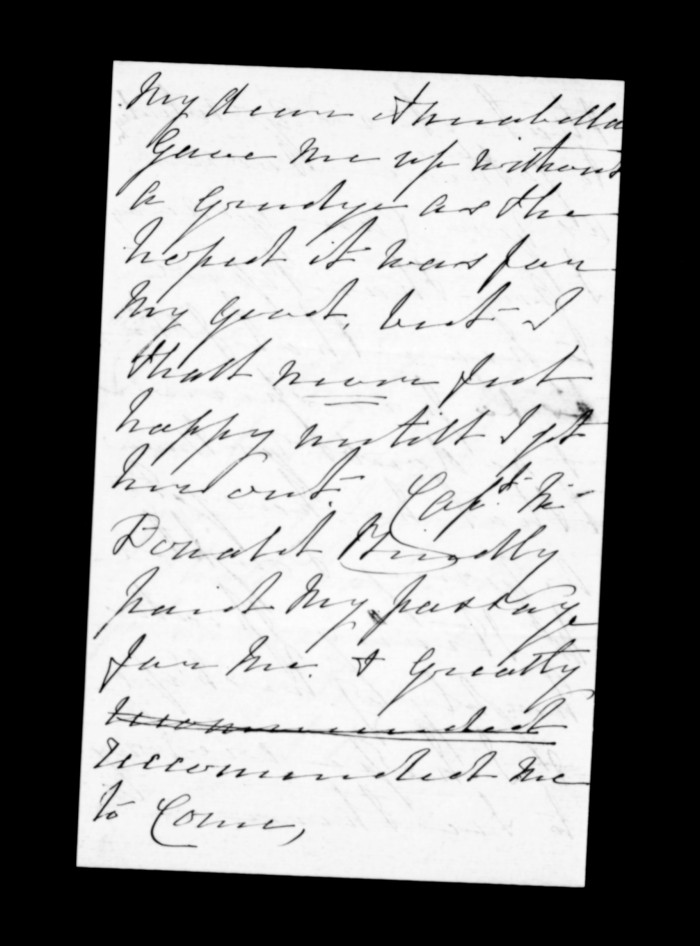 My dear Annabella
gave me up without
a grudge as she
hoped it was for
my good, but I
shall never feel
happy untill I get
her out. Capt. Mc
Donald Kindly
paid My passage
for me. & greatly
recommended
reccomended me
to Come,